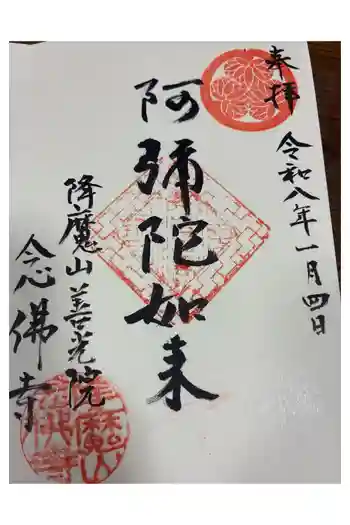 奉拝
令和八年一月四日
阿弥陀如来
降魔山善光院
念佛寺